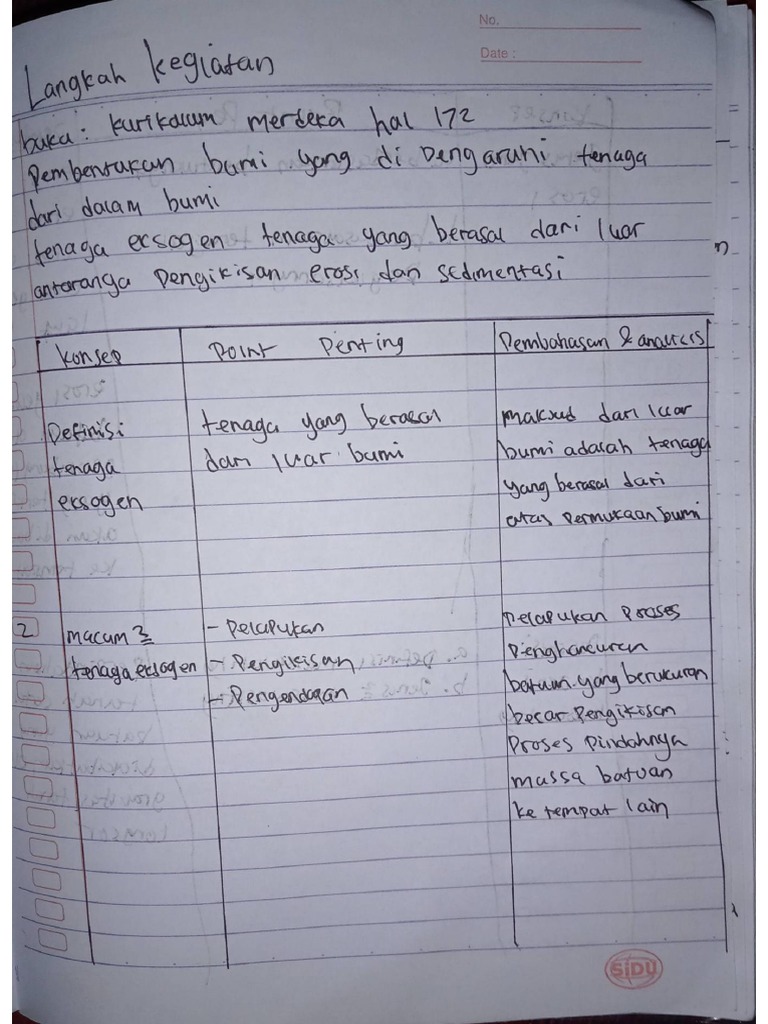 No.
Date :
Langkah kegiatan
buku : kurikulum merdeka hal 172
Pembentukan bumi yang di Pengaruhi tenaga
dari dalam bumi
tenaga eksogen tenaga yang berasal dari luar
antaranga Pengikisan erosi dan sedimentasi
Konsep
Point Penting
Pembahasan & analisis
Definisi
tenaga
eksogen
tenaga yang berasal
dari luar bumi
maksud dari luar
bumi adalah tenaga
yang berasal dari
atas Permukaan bumi
2
macam2
tenaga eksogen
- Pelapukan
- Pengikisan
- Pengendapan
Pelapukan Proses
Penghancuran
batuan yang berukuran
besar Pengikisan
Proses Pindahnya
massa batuan
ke tempat lain
SiDU